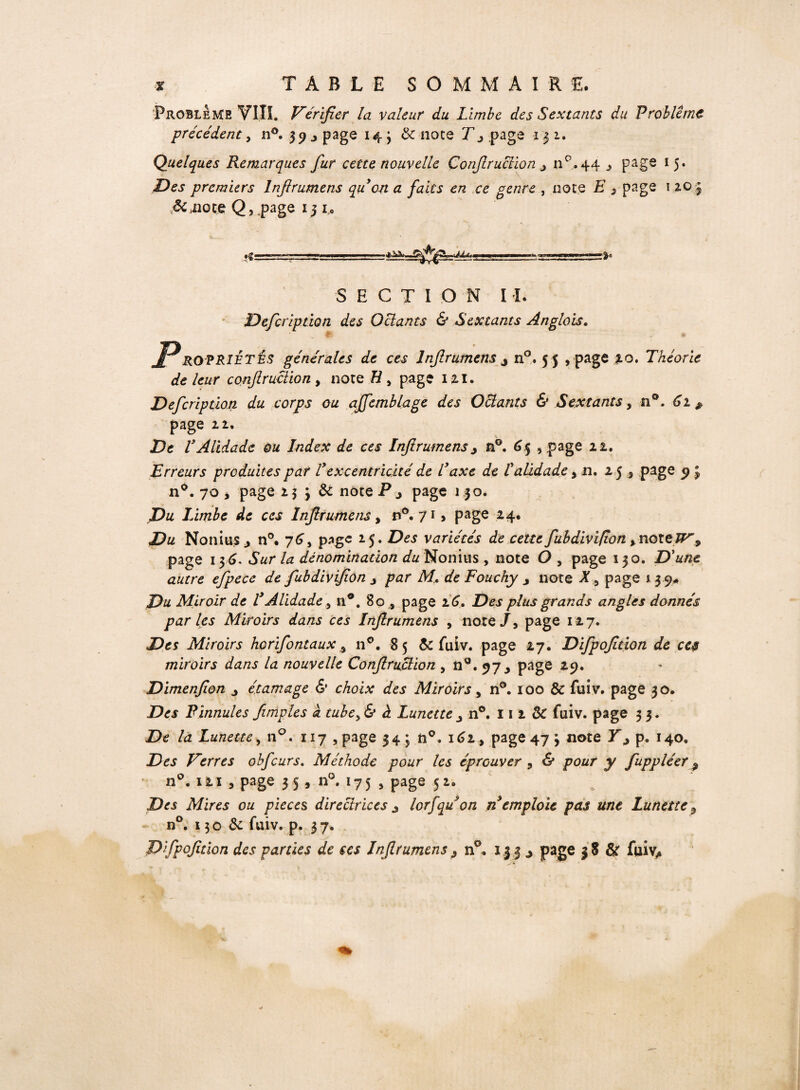 x TABLE SOMMAIRE.
PROBLÊME VIII. Vérifier la valeur du Limbe des Sextants du Problême
précédent, n°. 39, page 14; & note T, page 132.
Quelques Remarques ſur cette nouvelle Conſtruction, n°. 44, page 15.
Des premiers Inſtrumens qu'on a faits en ce genre, note E, page 120;
& note Q, page 131.
SECTION II.
Deſcription des Octants & Sextants Anglois.
PROPRIÉTÉS générales de ces Inſtrumens, n°. 55, page 20. Théorie
de leur conſtruction, note H, page 121.
Deſcription du corps ou aſſemblage des Octants & Sextants, n°. 62,
page 22.
De l'Alidade ou Index de ces Inſtrumens, n°. 65, page 22.
Erreurs produites par l'excentricité de l'axe de l'alidade, n. 25, page 9;
n°. 70, page 23; & note P, page 130.
Du Limbe de ces Inſtrumens, n°. 71, page 24.
Du Nonius, n°. 76, page 25. Des variétés de cette ſubdiviſion, note W,
page 136. Sur la dénomination du Nonius, note O, page 130. D'une
autre eſpece de ſubdiviſion, par M. de Fouchy, note X, page 139.
Du Miroir de l'Alidade, n°. 80, page 26. Des plus grands angles donnés
par les Miroirs dans ces Inſtrumens, note J, page 127.
Des Miroirs horiſontaux, n°. 85 & ſuiv. page 27. Diſpoſition de ces
miroirs dans la nouvelle Conſtruction, n°. 97, page 29.
Dimenſion, étamage & choix des Miroirs, n°. 100 & ſuiv. page 30.
Des Pinnules ſimples à tube, & à Lunette, n°. 112 & ſuiv. page 33.
De la Lunette, n°. 117, page 34; n°. 162, page 47; note Y, p. 140.
Des Verres obſcurs. Méthode pour les éprouver, & pour y ſuppléer,
n°. 121, page 35, n°. 175, page 52.
Des Mires ou pieces directrices, lorſqu'on n'emploie pas une Lunette,
n°. 130 & ſuiv. p. 37.
Diſpoſition des parties de ces Inſtrumens, n°. 133, page 38 & ſuiv.